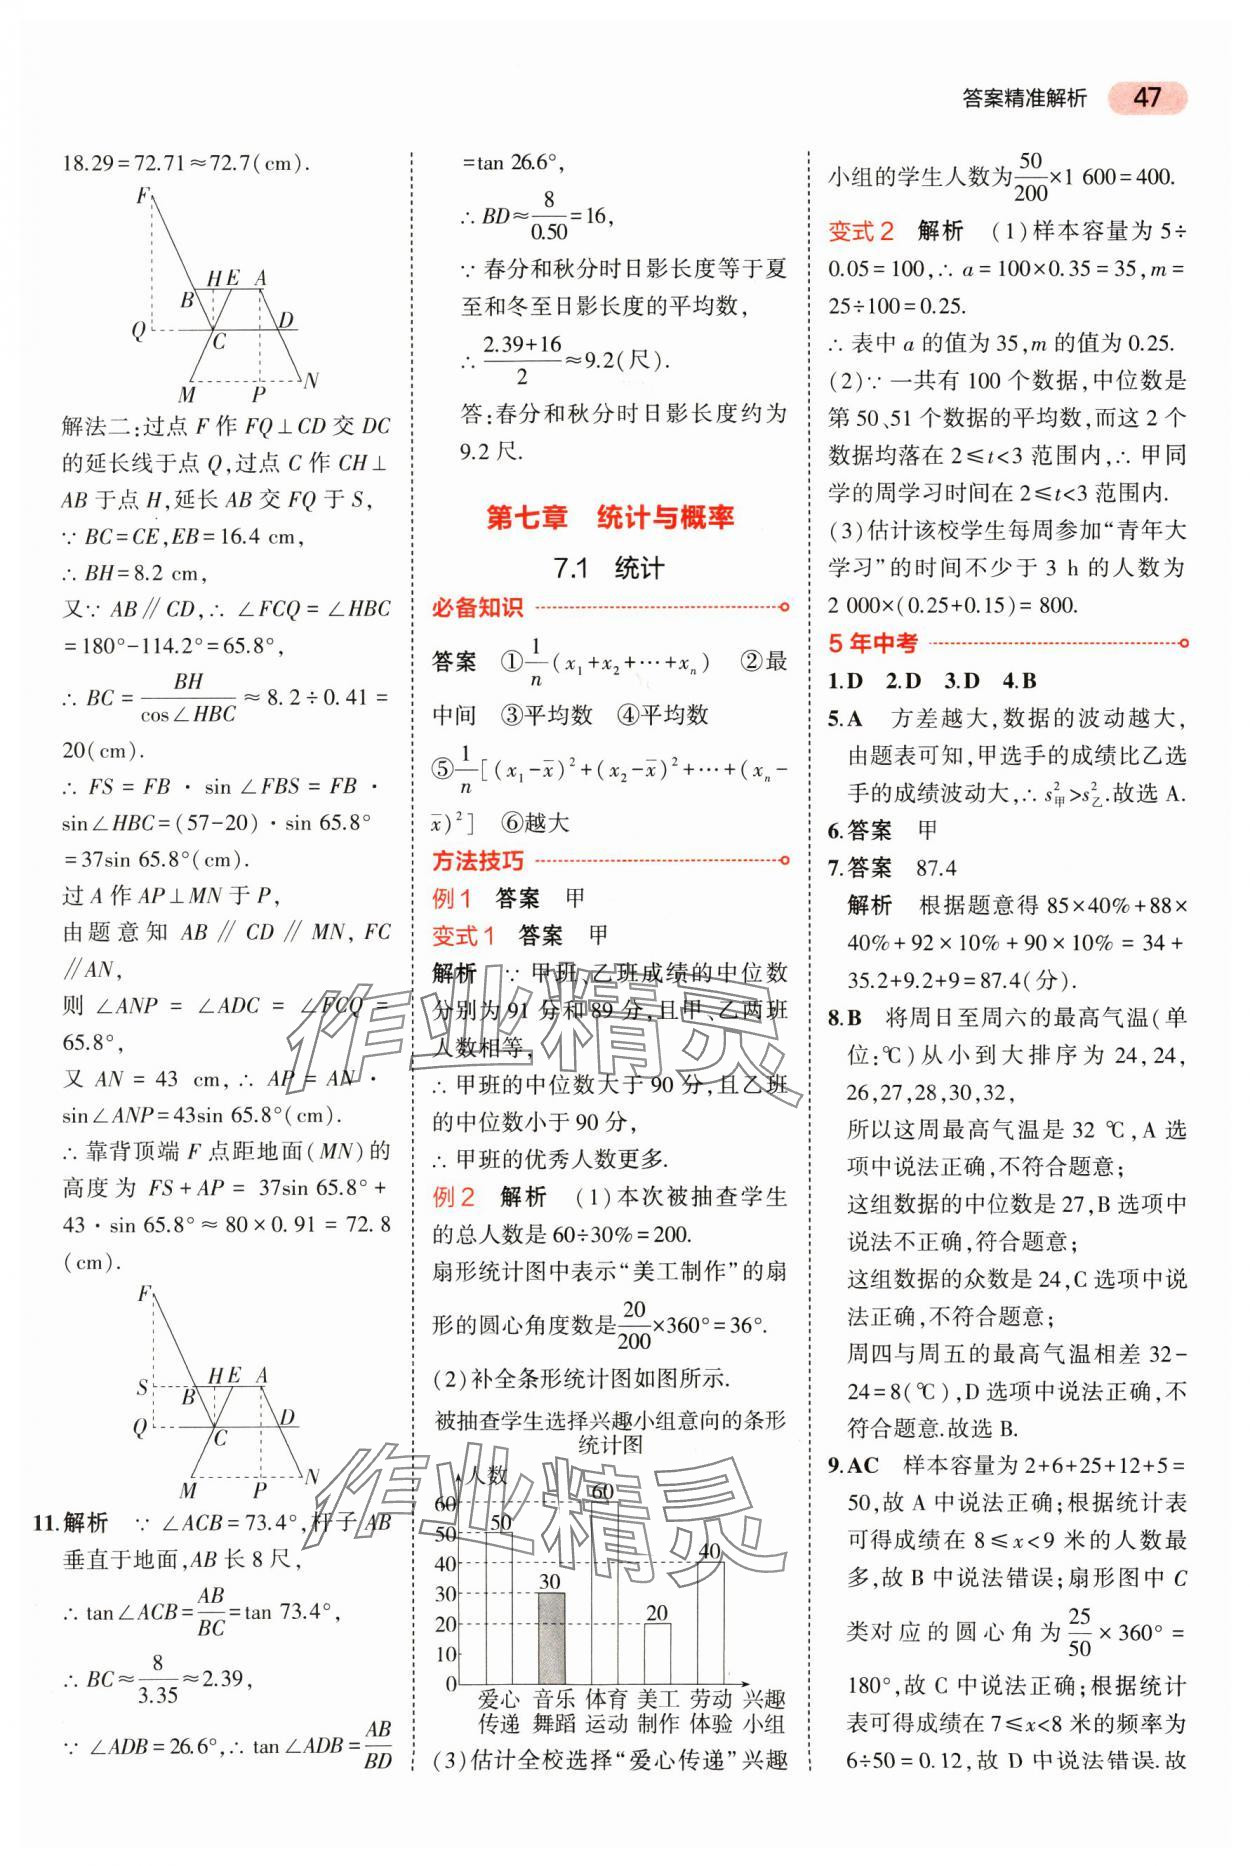 答案精准解析 47
18.29=72.71≈72.7(cm).
F
H E A
B
Q C D
M P N
解法二:过点 F 作 FQ⊥CD 交 DC
的延长线于点 Q,过点 C 作 CH⊥
AB 于点 H,延长 AB 交 FQ 于 S,
∵ BC=CE,EB=16.4 cm,
∴ BH=8.2 cm,
又∵ AB∥CD,∴ ∠FCQ=∠HBC
=180°-114.2°=65.8°,
∴ BC=BH/cos∠HBC≈8.2÷0.41=
20(cm).
∴ FS=FB·sin∠FBS=FB·
sin∠HBC=(57-20)·sin 65.8°
=37sin 65.8°(cm).
过 A 作 AP⊥MN 于 P,
由题意知 AB∥CD∥MN,FC
∥AN,
则∠ANP=∠ADC=∠FCQ=
65.8°,
又 AN=43 cm,∴ AP=AN·
sin∠ANP=43sin 65.8°(cm).
∴ 靠背顶端 F 点距地面(MN)的
高度为 FS+AP=37sin 65.8°+
43·sin 65.8°≈80×0.91=72.8
(cm).
F
S B H E A
Q C D
M P N
11.解析 ∵ ∠ACB=73.4°,杆子 AB
垂直于地面,AB 长 8 尺,
∴ tan∠ACB=AB/BC=tan 73.4°,
∴ BC≈8/3.35≈2.39,
∵ ∠ADB=26.6°,∴ tan∠ADB=AB/BD
=tan 26.6°,
∴ BD≈8/0.50=16,
∵ 春分和秋分时日影长度等于夏
至和冬至日影长度的平均数,
∴ (2.39+16)/2≈9.2(尺).
答:春分和秋分时日影长度约为
9.2 尺.
第七章 统计与概率
7.1 统计
必备知识
答案 ①1/n(x₁+x₂+⋯+xₙ) ②最
中间 ③平均数 ④平均数
⑤1/n[(x₁-x̄)²+(x₂-x̄)²+⋯+(xₙ-
x̄)²] ⑥越大
方法技巧
例 1 答案 甲
变式 1 答案 甲
解析 ∵ 甲班、乙班成绩的中位数
分别为 91 分和 89 分,且甲、乙两班
人数相等,
∴ 甲班的中位数大于 90 分,且乙班
的中位数小于 90 分,
∴ 甲班的优秀人数更多.
例 2 解析 (1)本次被抽查学生
的总人数是 60÷30%=200.
扇形统计图中表示“美工制作”的扇
形的圆心角度数是20/200×360°=36°.
(2)补全条形统计图如图所示.
被抽查学生选择兴趣小组意向的条形
统计图
人数
60 60
50 50
40 40
30 30
20 20
10
0
爱心 音乐 体育 美工 劳动 兴趣
传递 舞蹈 运动 制作 体验 小组
(3)估计全校选择“爱心传递”兴趣
小组的学生人数为50/200×1 600=400.
变式 2 解析 (1)样本容量为 5÷
0.05=100,∴ a=100×0.35=35,m=
25÷100=0.25.
∴ 表中 a 的值为 35,m 的值为 0.25.
(2)∵ 一共有 100 个数据,中位数是
第 50、51 个数据的平均数,而这 2 个
数据均落在 2≤t<3 范围内,∴ 甲同
学的周学习时间在 2≤t<3 范围内.
(3)估计该校学生每周参加“青年大
学习”的时间不少于 3 h 的人数为
2 000×(0.25+0.15)=800.
5 年中考
1.D 2.D 3.D 4.B
5.A 方差越大,数据的波动越大,
由题表可知,甲选手的成绩比乙选
手的成绩波动大,∴ s²甲>s²乙.故选 A.
6.答案 甲
7.答案 87.4
解析 根据题意得 85×40%+88×
40%+92×10%+90×10%=34+
35.2+9.2+9=87.4(分).
8.B 将周日至周六的最高气温(单
位:℃)从小到大排序为 24,24,
26,27,28,30,32,
所以这周最高气温是 32 ℃,A 选
项中说法正确,不符合题意;
这组数据的中位数是 27,B 选项中
说法不正确,符合题意;
这组数据的众数是 24,C 选项中说
法正确,不符合题意;
周四与周五的最高气温相差 32-
24=8(℃),D 选项中说法正确,不
符合题意.故选 B.
9.AC 样本容量为 2+6+25+12+5=
50,故 A 中说法正确;根据统计表
可得成绩在 8≤x<9 米的人数最
多,故 B 中说法错误;扇形图中 C
类对应的圆心角为25/50×360°=
180°,故 C 中说法正确;根据统计
表可得成绩在 7≤x<8 米的频率为
6÷50=0.12,故 D 中说法错误.故
作业精灵
作业精灵